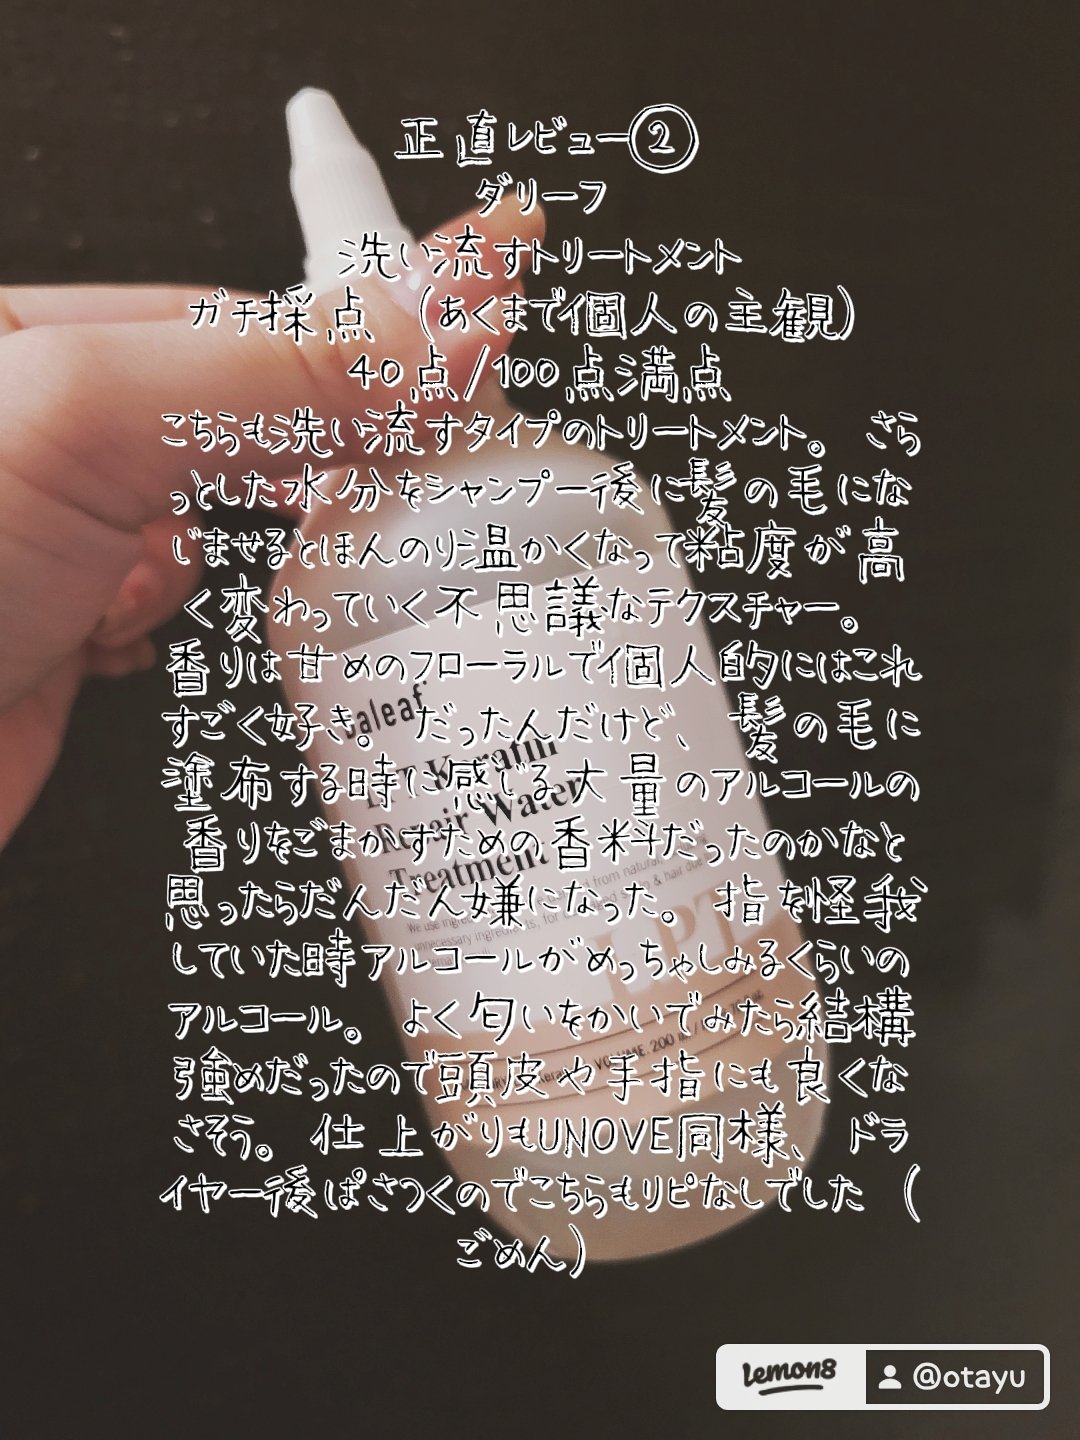 正直レビュー②
ダリーフ
洗い流すトリートメント
ガチ採点 (あくまで個人の主観)
40点/100点満点
こちらも洗い流すタイプのトリートメント。 さら
っとした水分をシャンプー後に髪の毛にな
じませるとほんのり温かくなって粘度が高
く変わっていく不思議なテクスチャー。
香りは甘めのフローラルで個人的にはこれ
すごく好き。だったんだけど、髪の毛に
塗布する時に感じる大量のアルコールの
香りをごまかすための香料だったのかなと
思ったらだんだん嫌になった。指を怪我
していた時アルコールがめっちゃしみるくらいの
アルコール。 よく匂いをかいでみたら結構
強めだったので頭皮や手指にも良くな
さそう。 仕上がりもUNOVE同様、ドラ
イヤー後ぱさつくのでこちらもリピなしでした (
ごめん)
daleaf
LPT Keratin
Repair Water
Treatment
LPT
VOLUME. 200 ml
lemon8 @otayu